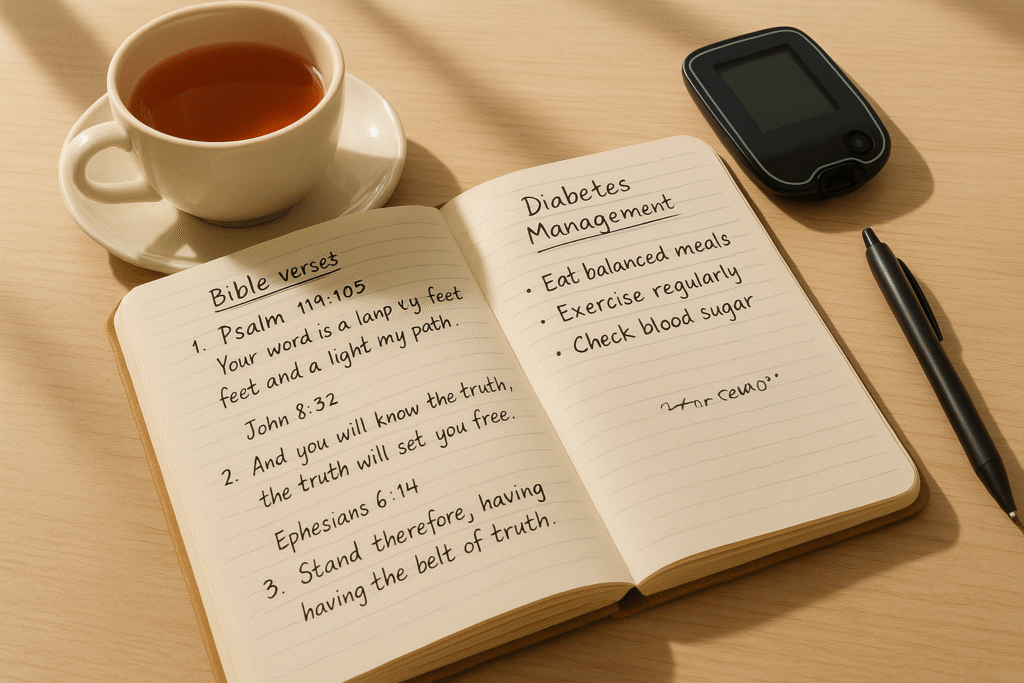 Bible verses
1. Psalm 119:105
Your word is a lanp feet
feet and a light my path.
John 8:32
2. And you will know the truth,
the truth will set you free.
Ephesians 6:14
3. Stand therefore, having
having the belt of truth.
Diabetes
Management
• Eat balanced meals
• Exercise regularly
• Check blood sugar